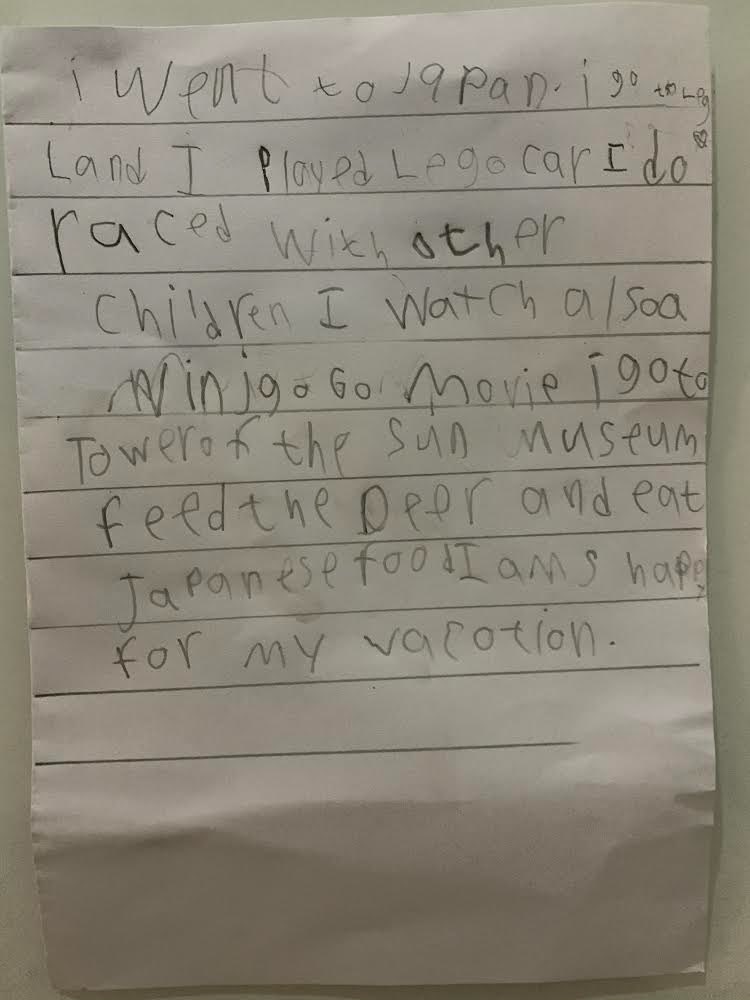 i went to Japan. i go to Leg
Land I Played Lego car I do
raced with other
children I watch alsoa
Ninjgo Go Movie i goto
Tower of the Sun Museum
feed the Deer and eat
Japanese food I am s hape
for my vacotion.